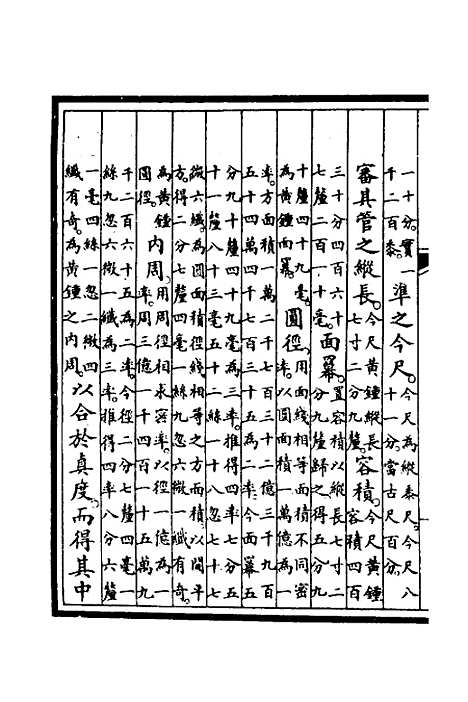 一十分。實一
千二百黍。
準之今尺。
今尺為縱黍尺今尺八
十一分。當古尺百分。
審其管之縱長。
今尺黃鍾縱長
七寸二分九釐。
容積。
今尺黃鍾
容積四百
三十分四百六十
七釐二百一十毫。
面冪。
置容積以縱長七寸二
分九釐歸之。得五分九
十釐四十九毫。
為黃鍾面冪。
圓徑。
用面線相等面積不同密
率。以圓面積一萬億為一
率。方面積一萬二千七百三十二億三千九百
五十四萬四千七百三十五為二率。今面冪五
分九十釐四十九毫為三率。推得四率七分五
十一釐八十三毫五十二絲一十八忽七十七
微六纖。為圓面積徑線相等之方面積。以開平
方。得二分七釐四毫一絲九忽六微一纖有奇。
為黃鍾
圓徑。
內周。
用周徑相求密率。以徑一億為一
率。周三億一千四百一十五萬九
千二百六十五為二率。今徑二分七釐四毫一
絲九忽六微一纖為三率。推得四率八分六釐
一毫四絲一忽二微四
纖有奇。為黃鍾之內周。
以合於真度。而得其中